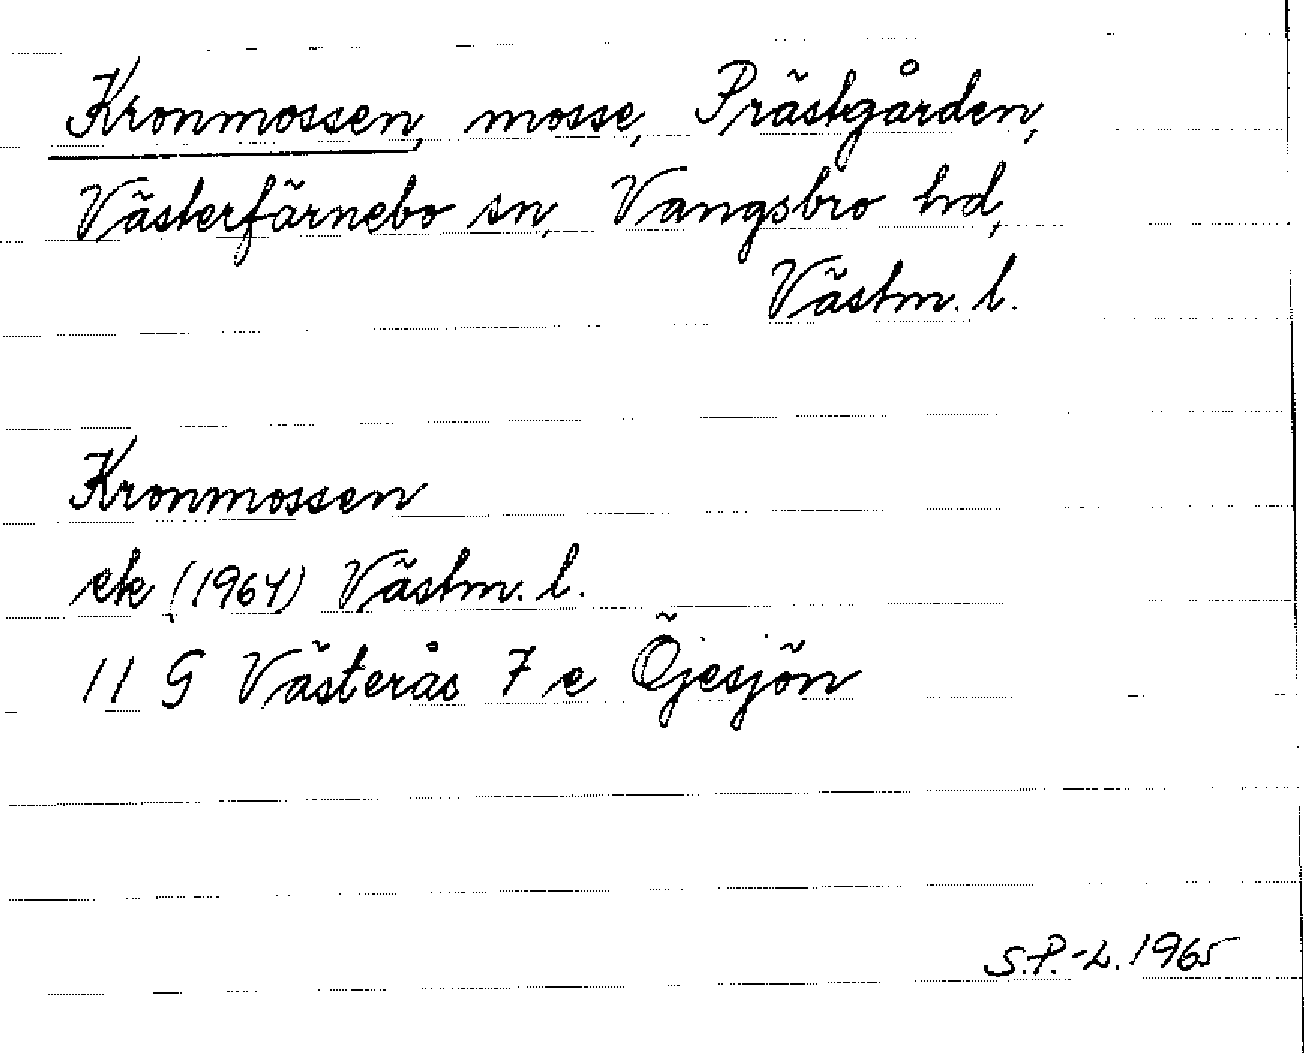 Kronmossen, mosse, Prästgården,
Västerfärnebo sn, Vangsbro hd,
Västm. l.
Kronmossen
ek (1964) Västm. l.
11 G Västerås 7 e Öjesjön
S.P.-L. 1965